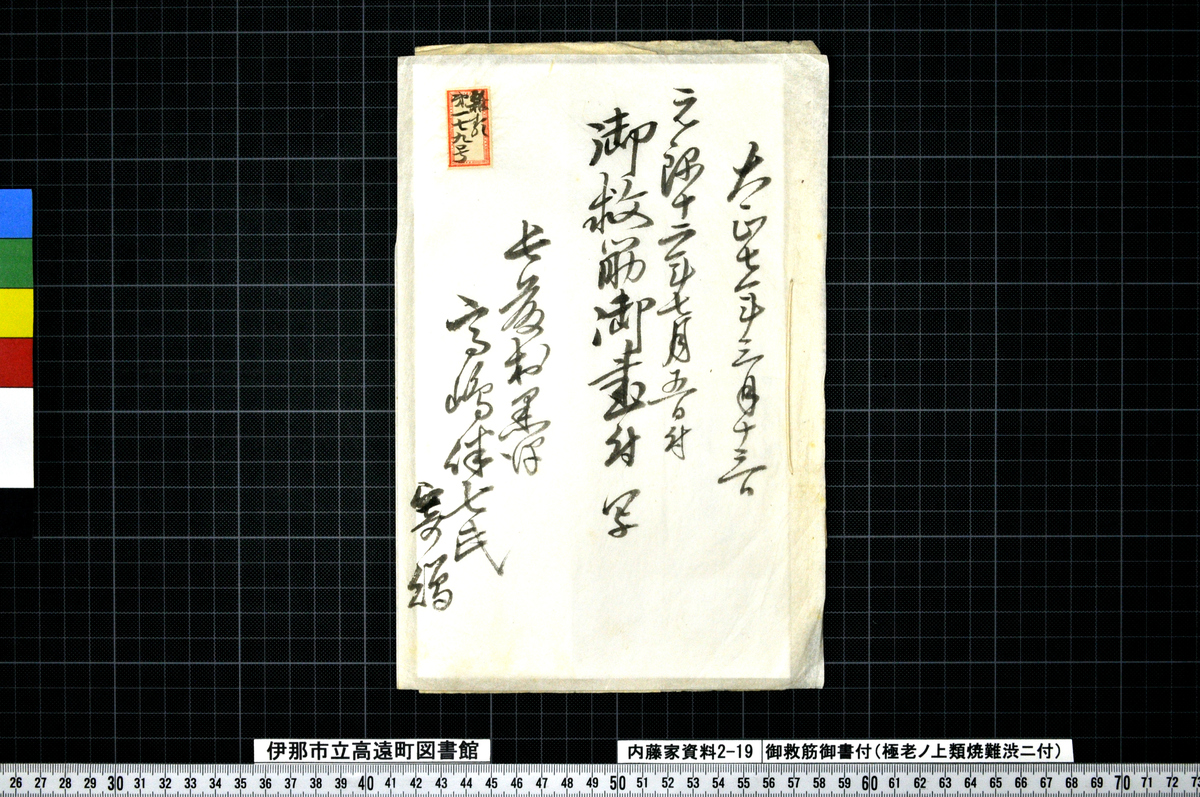 大正七年三月十三日
元禄十二年七月五日付
御救筋御書付 写
長藤村黒沢
高嶋伴七氏
寄贈
第一七九号
伊那市立高遠町図書館
内藤家資料2-19
御救筋御書付(極老ノ上類焼難渋ニ付)
26 27 28 29 30 31 32 33 34 35 36 37 38 39 40 41 42 43 44 45 46 47 48 49 50 51 52 53 54 55 56 57 58 59 60 61 62 63 64 65 66 67 68 69 70 71 72